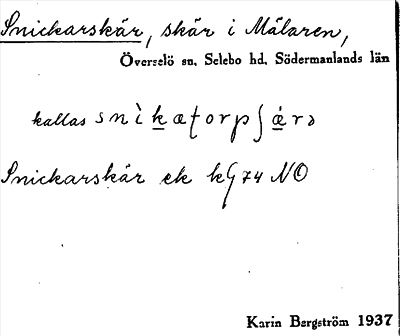 Snickarskär, skär i Mälaren,
Överselö sn, Selebo hd, Södermanlands län
kallas
Snickarskär ek kG 74 NO
Karin Bergström 1937